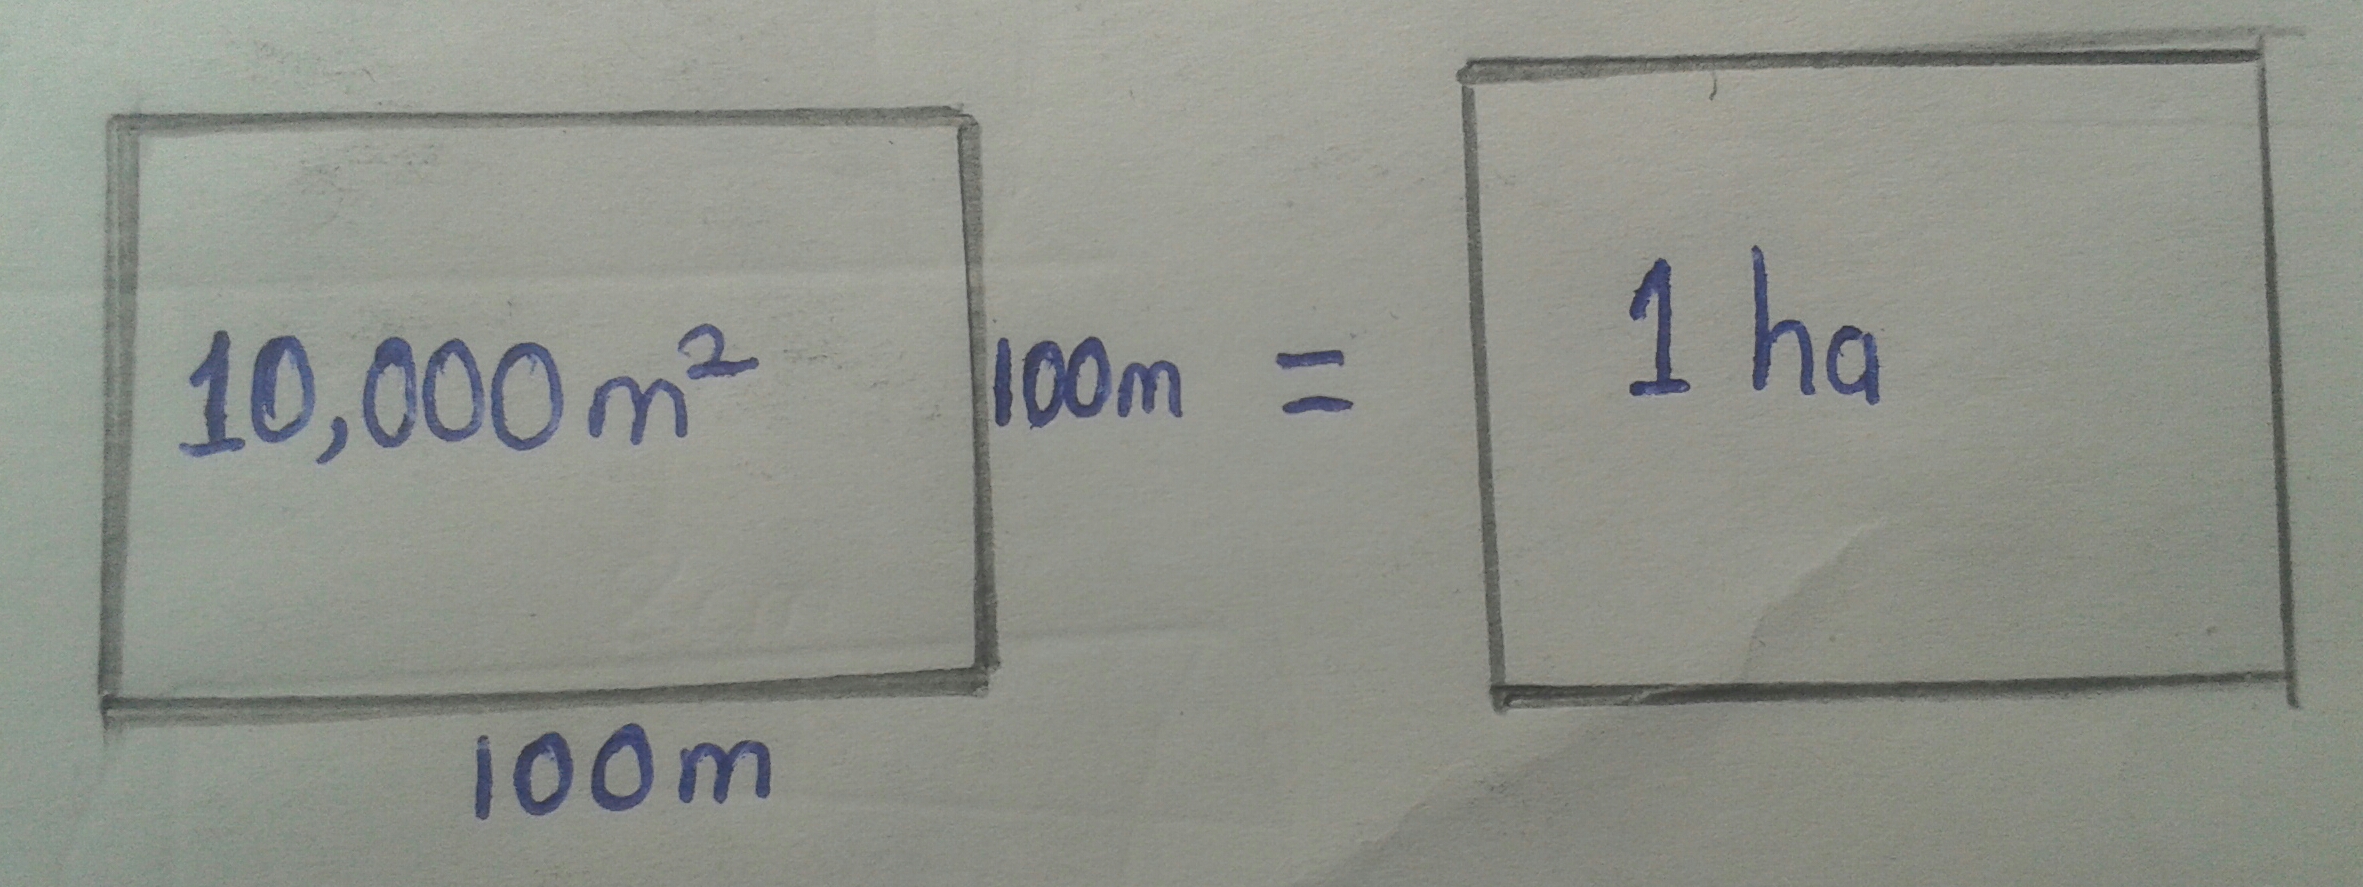 10,000m² 100m = 1 ha
100m